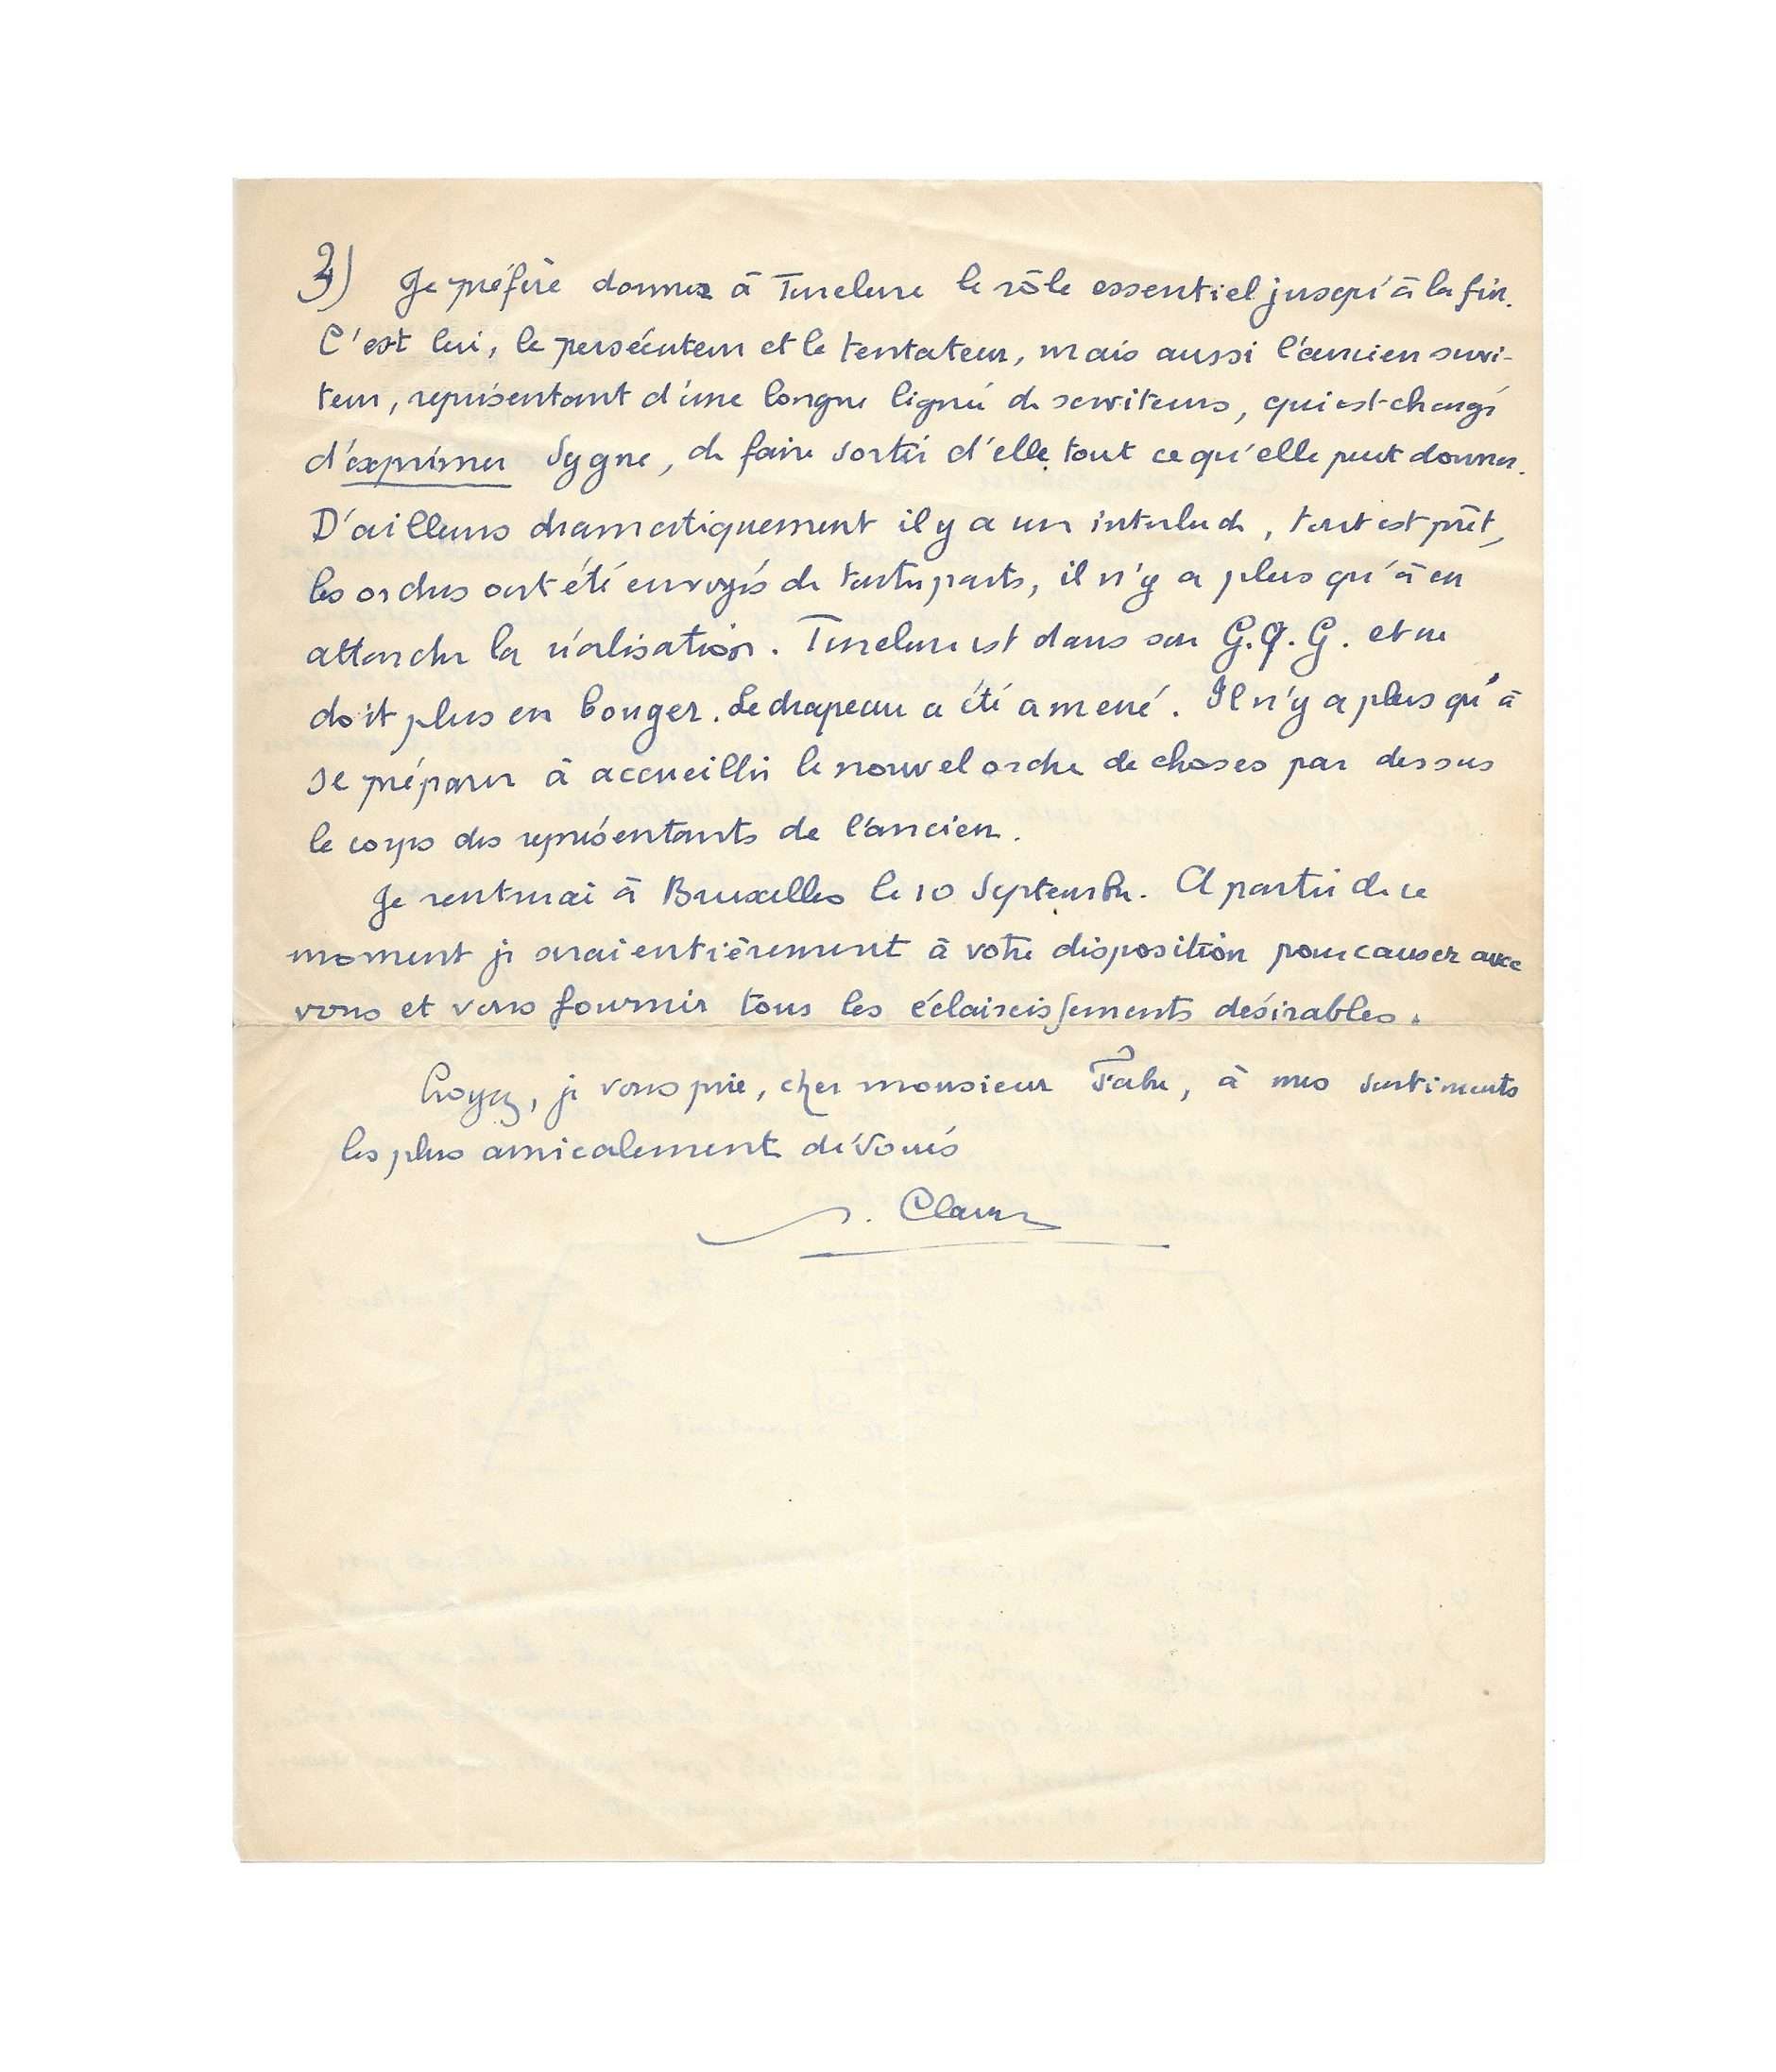 3) Je préfère donner à Turelure le rôle essentiel jusqu'à la fin.
C'est lui, le persécuteur et le tentateur, mais aussi l'ancien servi-
teur, représentant d'une longue lignée de serviteurs, qui est chargé
d'exprimer Sygne, de faire sortir d'elle tout ce qu'elle peut donner.
D'ailleurs dramatiquement il y a un interlude, tout est prêt,
les ordres ont été envoyés de toutes parts, il n'y a plus qu'à en
attendre la réalisation. Turelure est dans son G.Q.G. et ne
doit plus en bouger. Le drapeau a été amené. Il n'y a plus qu'à
se préparer à accueillir le nouvel ordre de choses par dessus
le corps des représentants de l'ancien.
Je rentrerai à Bruxelles le 10 Septembre. A partir de ce
moment je serai entièrement à votre disposition pour causer avec
vous et vous fournir tous les éclaircissements désirables.
Croyez, je vous prie, cher monsieur Fabre, à mes sentiments
les plus amicalement dévoués
P. Claudel